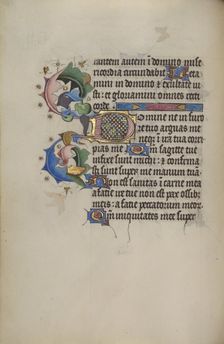 rantem autem ī domino mise
ricordia circundabit Leta
mini in domino ⁊ exultate iu
sti: et gloriamini omnes recti
corde
omine ne in furo
re tuo arguas me
neqȝ ī ira tua corri
pias me Qm̄ sagitte tue
infixe sunt michi: ⁊ confirma
sti super me manum tuā
Non est sanitas ī carne mea
a facie ire tue non est pax ossibȝ
meis: a facie peccatorum meorū
Qm̄ iniquitates mee super